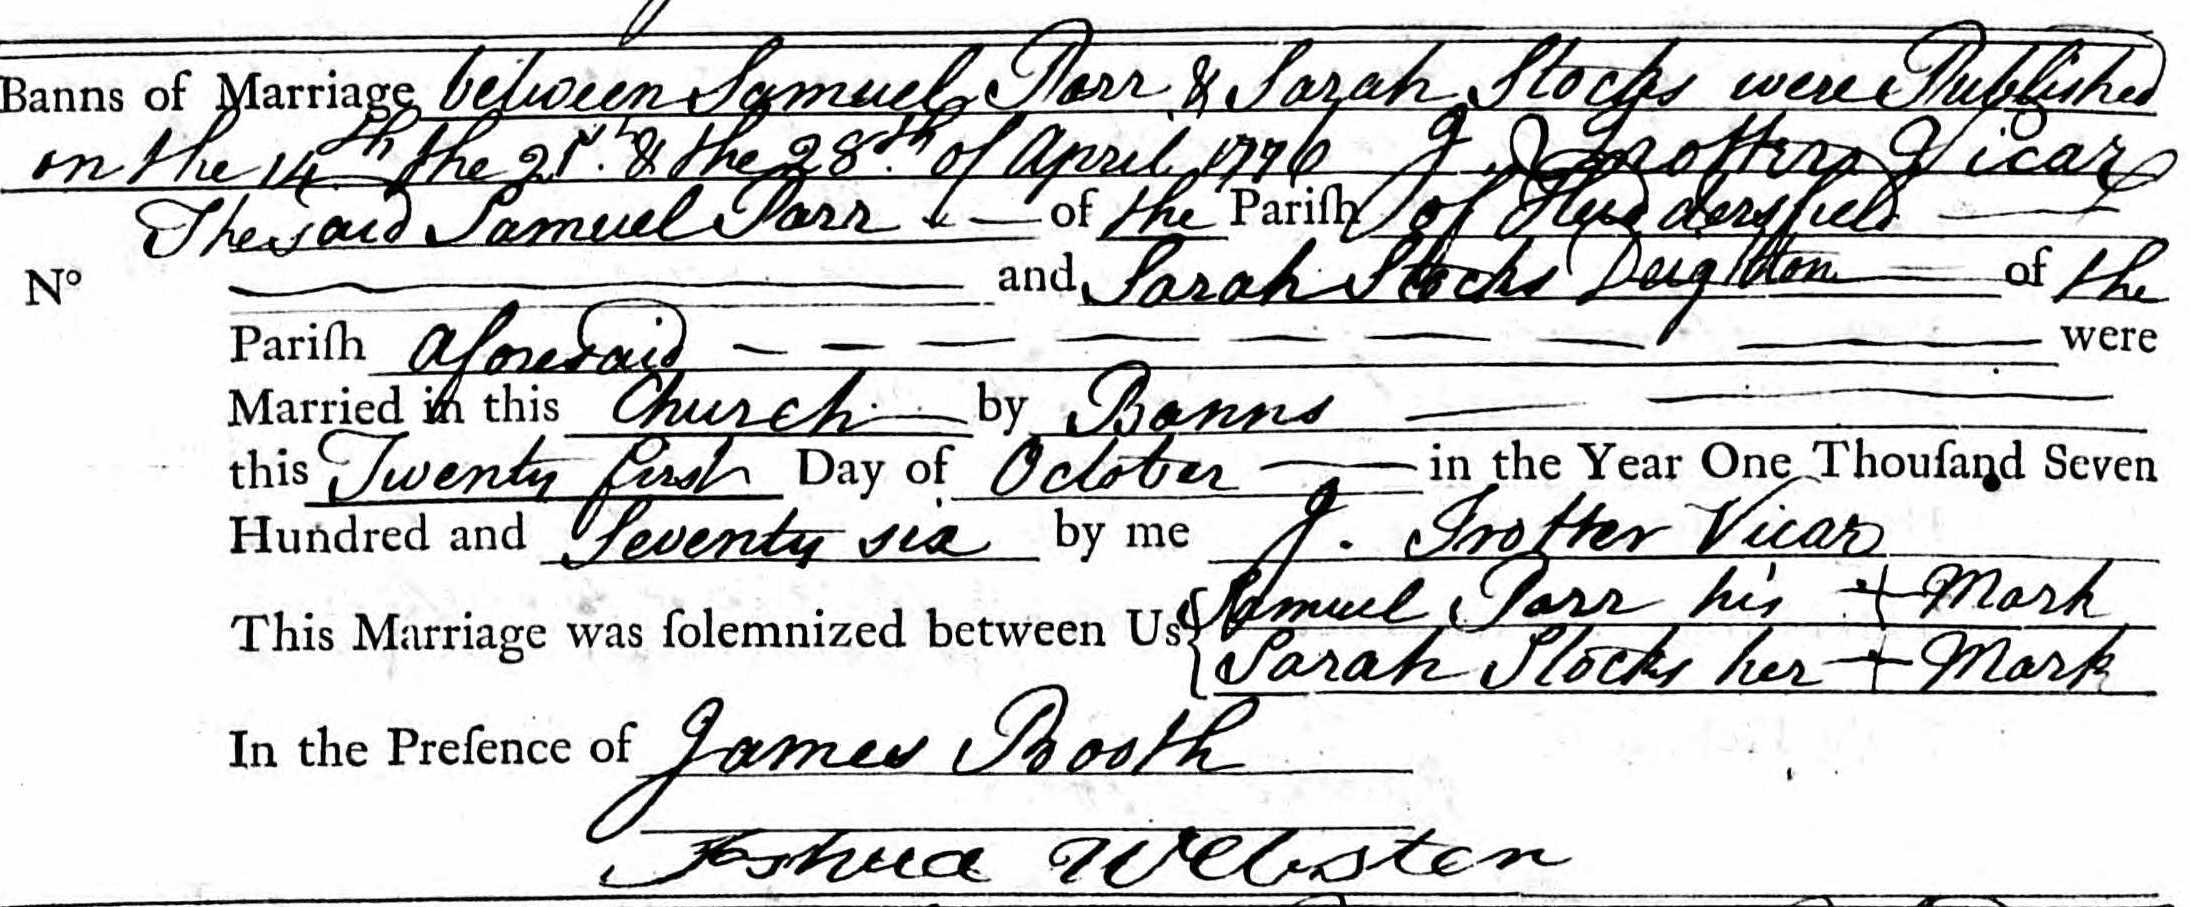 Banns of Marriage between Samuel Parr & Sarah Stocks were Published
on the 14th the 21st. & the 28th. of April 1776 J. Trotter Vicar
The said Samuel Parr of the Pariſh of Huddersfield
No and Sarah Stocks Deighton of the
Pariſh aforesaid were
Married in this Church by Banns
this Twenty first Day of October in the Year One Thouſand Seven
Hundred and Seventy six by me J. Trotter Vicar
This Marriage was ſolemnized between Us { Samuel Parr his + Mark
Sarah Stocks her + Mark
In the Preſence of James Booth
Joshua Webster